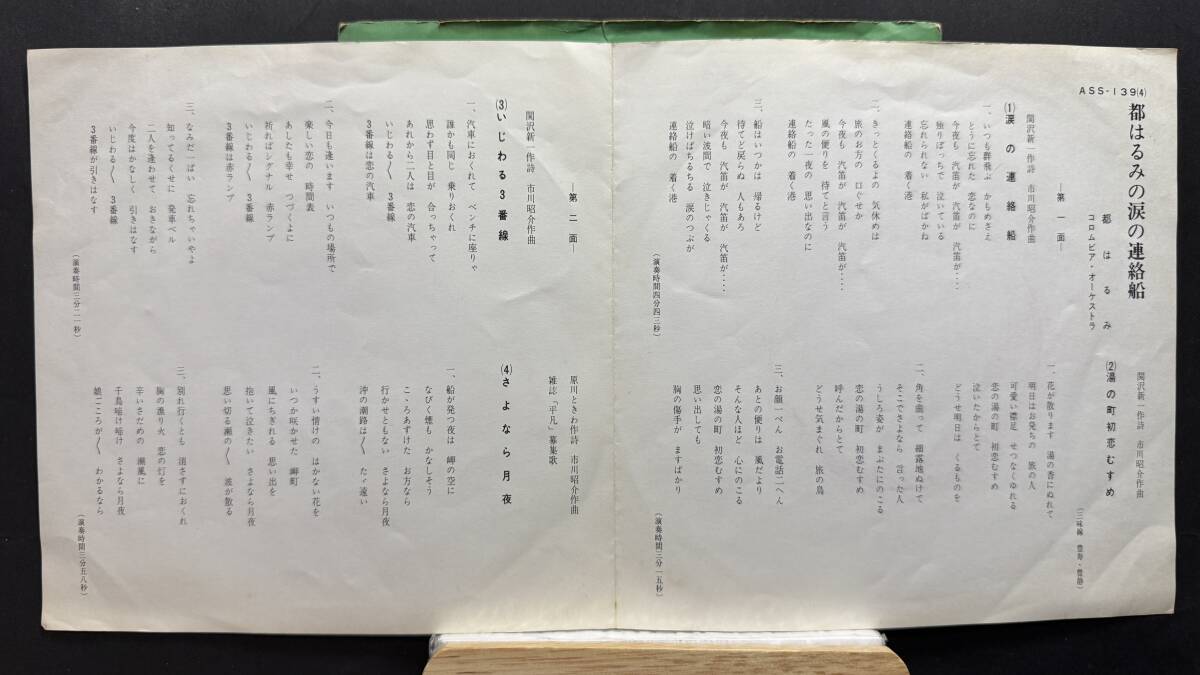 ASS-139⑷
都はるみの涙の連絡船
都はるみ
コロムビア・オーケストラ
―第一面―
⑴涙の連絡船
関沢新一作詩 市川昭介作曲
一、いつも群飛ぶ かもめさえ
とうに忘れた 恋なのに
今夜も 汽笛が 汽笛が 汽笛が‥‥
独りぼっちで 泣いている
忘れられない 私がばかね
連絡船の 着く港
二、きっとくるよの 気休めは
旅のお方の 口ぐせか
今夜も 汽笛が 汽笛が 汽笛が‥‥
風の便りを 待てと言う
たった一夜の 思い出なのに
連絡船の 着く港
三、船はいつかは 帰るけど
待てど戻らぬ 人もあろ
今夜も 汽笛が 汽笛が 汽笛が‥‥
暗い波間で 泣きじゃくる
泣けばちるちる 涙のつぶが
連絡船の 着く港
(演奏時間四分四三秒)
⑵湯の町初恋むすめ
関沢新一作詩 市川昭介作曲
(三味線 豊寿・豊静)
一、花が散ります 湯の香にぬれて
明日はお発ちの 旅の人
可愛い襟足 せつなくゆれる
恋の湯の町 初恋むすめ
泣いたからとて
どうせ明日は くるものを
二、角を曲って 細露地ぬけて
そこでさよなら 言った人
うしろ姿が まぶたにのこる
恋の湯の町 初恋むすめ
呼んだからとて
どうせ気まぐれ 旅の鳥
三、お顔一ぺん お電話二へん
あとの便りは 風だより
そんな人ほど 心にのこる
恋の湯の町 初恋むすめ
思い出しても
胸の傷手が ますばかり
(演奏時間三分一五秒)
―第二面―
⑶いじわる3番線
関沢新一作詩 市川昭介作曲
一、汽車におくれて ベンチに座りゃ
誰かも同じ 乗りおくれ
思わず目と目が 合っちゃって
あれから二人は 恋の汽車
いじわる〳〵 3番線
3番線は恋の汽車
二、今日も逢います いつもの場所で
楽しい恋の 時間表
あしたも幸せ つづくよに
祈ればシグナル 赤ランプ
いじわる〳〵 3番線
3番線は赤ランプ
三、なみだ一ぱい 忘れちゃいやよ
知ってるくせに 発車ベル
二人を逢わせて おきながら
今度はかなしく 引きはなす
いじわる〳〵 3番線
3番線が引きはなす
(演奏時間三分二一秒)
⑷さよなら月夜
原川ときわ作詩 市川昭介作曲
雑誌「平凡」募集歌
一、船が発つ夜は 岬の空に
なびく煙も かなしそう
こゝろあずけた お方なら
行かせともない さよなら月夜
沖の潮路は〳〵 たゞ遠い
二、うすい情けの はかない花を
いつか咲かせた 岬町
風にちぎれる 思い出を
抱いて泣きたい さよなら月夜
思い切る瀬の〳〵 波が散る
三、別れ行くとも 消さずにおくれ
胸の漁り火 恋の灯を
辛いさだめの 瀬風に
千鳥啼け啼け さよなら月夜
娘ごころが〳〵 わかるなら
(演奏時間三分五八秒)